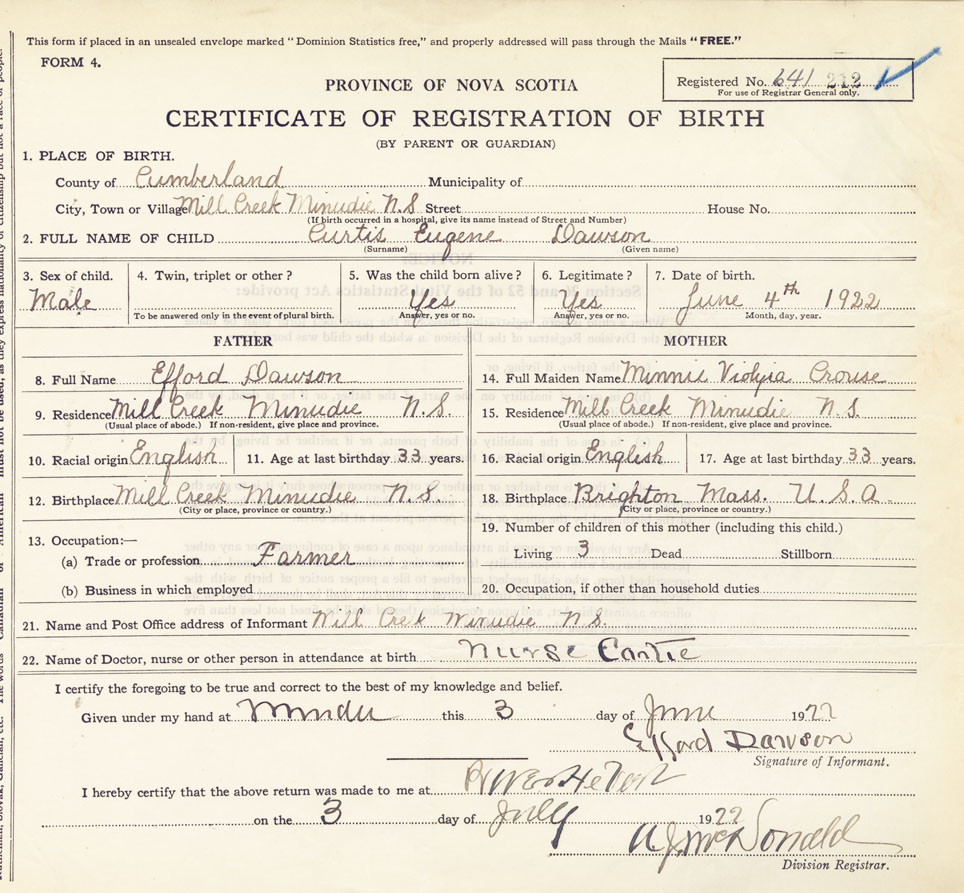 This form if placed in an unsealed envelope marked "Dominion Statistics free," and properly addressed will pass through the Mails "FREE."
FORM 4.
Registered No. 641 212
For use of Registrar General only.
PROVINCE OF NOVA SCOTIA
CERTIFICATE OF REGISTRATION OF BIRTH
(BY PARENT OR GUARDIAN)
1. PLACE OF BIRTH.
County of Cumberland Municipality of
City, Town or Village Mill Creek Minudie N.S Street House No.
(If birth occurred in a hospital, give its name instead of Street and Number)
2. FULL NAME OF CHILD Curtis Eugene Dawson
(Surname) (Given name)
3. Sex of child. 4. Twin, triplet or other? 5. Was the child born alive? 6. Legitimate? 7. Date of birth.
Male Yes Yes June 4th 1922
To be answered only in the event of plural birth. Answer, yes or no. Answer, yes or no. Month, day, year.
FATHER
8. Full Name Efford Dawson
9. Residence Mill Creek Minudie N.S.
(Usual place of abode.) If non-resident, give place and province.
10. Racial origin English 11. Age at last birthday 33 years.
12. Birthplace Mill Creek Minudie N.S.
(City or place, province or country.)
13. Occupation:—
(a) Trade or profession Farmer
(b) Business in which employed
MOTHER
14. Full Maiden Name Minnie Crouse
15. Residence Mill Creek Minudie N.S.
(Usual place of abode.) If non-resident, give place and province.
16. Racial origin English 17. Age at last birthday 33 years.
18. Birthplace Brighton Mass. U.S.A
(City or place, province or country.)
19. Number of children of this mother (including this child.)
Living 3 Dead Stillborn
20. Occupation, if other than household duties
21. Name and Post Office address of Informant Mill Crek Minudie N.S.
22. Name of Doctor, nurse or other person in attendance at birth Nurse
I certify the foregoing to be true and correct to the best of my knowledge and belief.
Given under my hand at this 3 day of June 1922
Efford Dawson
Signature of Informant.
I hereby certify that the above return was made to me at River Hebert
on the 3 day of July 1922
A J McDonald
Division Registrar.